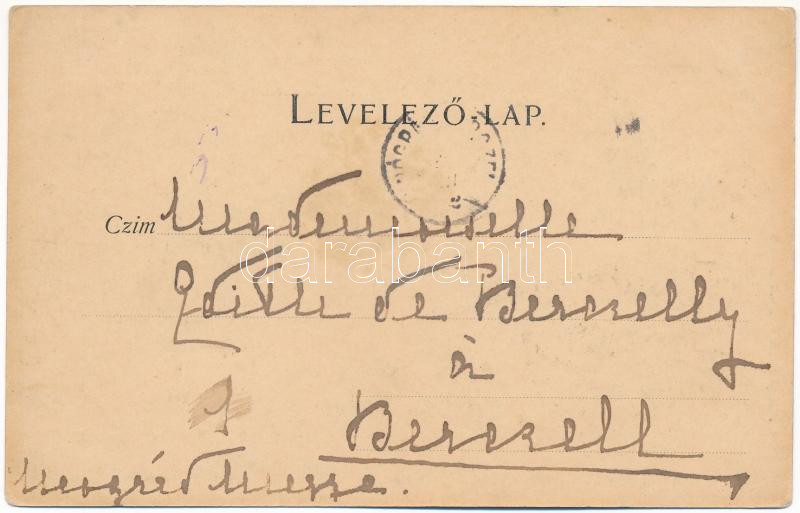 LEVELEZŐ-LAP.
Czim Mademoiselle
Edithe de Berczelly
à
Berczell
Neográd Megye.
darabanth